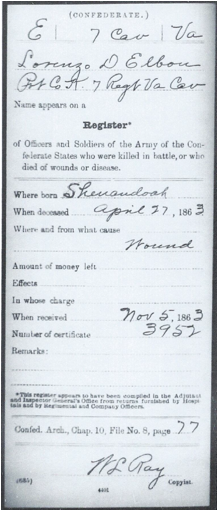 (CONFEDERATE.)
E 7 Cav Va
Lorenzo D Elbon
Pvt Co K. 7 Regt Va Cav
Name appears on a
Register*
of Officers and Soldiers of the Army of the Con-
federate States who were killed in battle, or who
died of wounds or disease.
Where born Shenandoah
When deceased April 27, 1863
Where and from what cause
Wound
Amount of money left
Effects
In whose charge
When received Nov 5, 1863
Number of certificate 3952
Remarks:
*This register appears to have been compiled in the Adjutant
and Inspector General's Office from returns furnished by Hospi-
tals and by Regimental and Company Officers.
Confed. Arch., Chap. 10, File No. 8, page 77
W L Ray
Copyist.